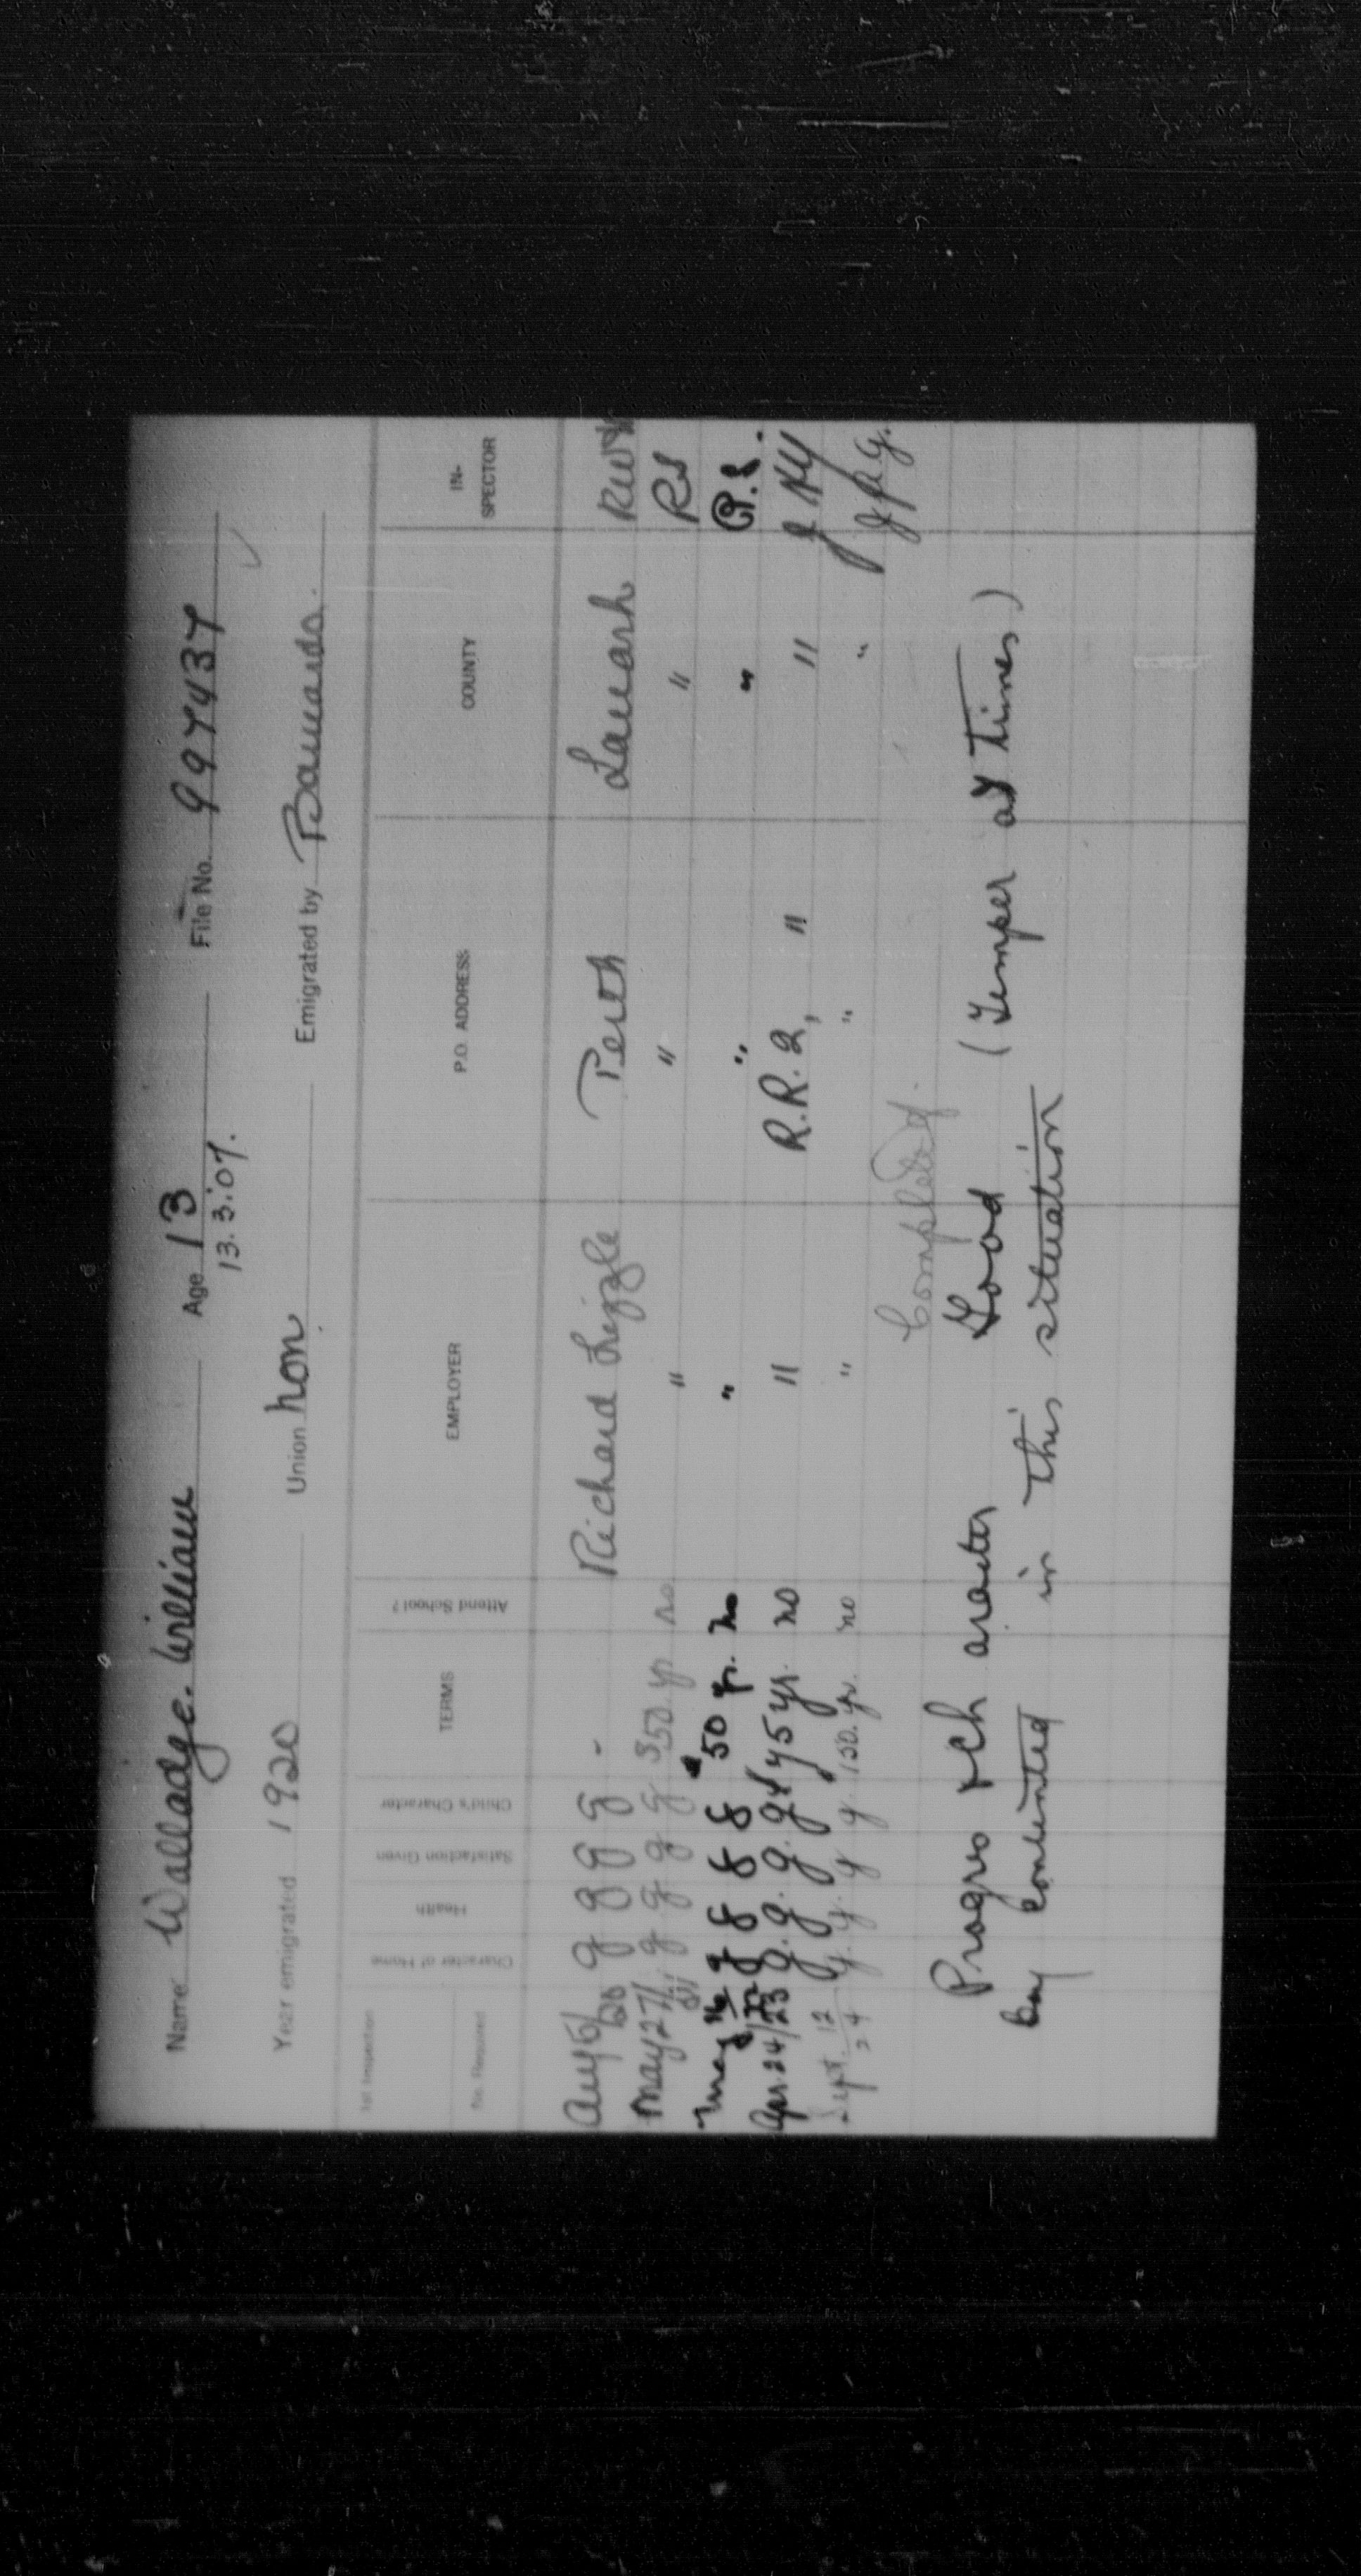 Name Walladge. William Age 13 File No. 997437
13.3.07.
Year emigrated 1920 Union non Emigrated by Barnardo.
1st Inspection No. Required Character of Home Health Satisfaction Given Child's Character TERMS Attend School? EMPLOYER P.O. ADDRESS COUNTY IN-SPECTOR
Aug 6/20 g g g g - Richard Perth Lanark
May 27/21 g g g g $50 yr no " " " RS
May 16/22 g g g g 50 yr. no " " "
Apr. 24/23 g. g. g. g. $75 yr. no " R.R. 2, " "
Sept. 12/24 g. g. g g. 150. yr. no " " "
Completed.
Progress & Character Good (Temper at times)
Boy contented in this situation